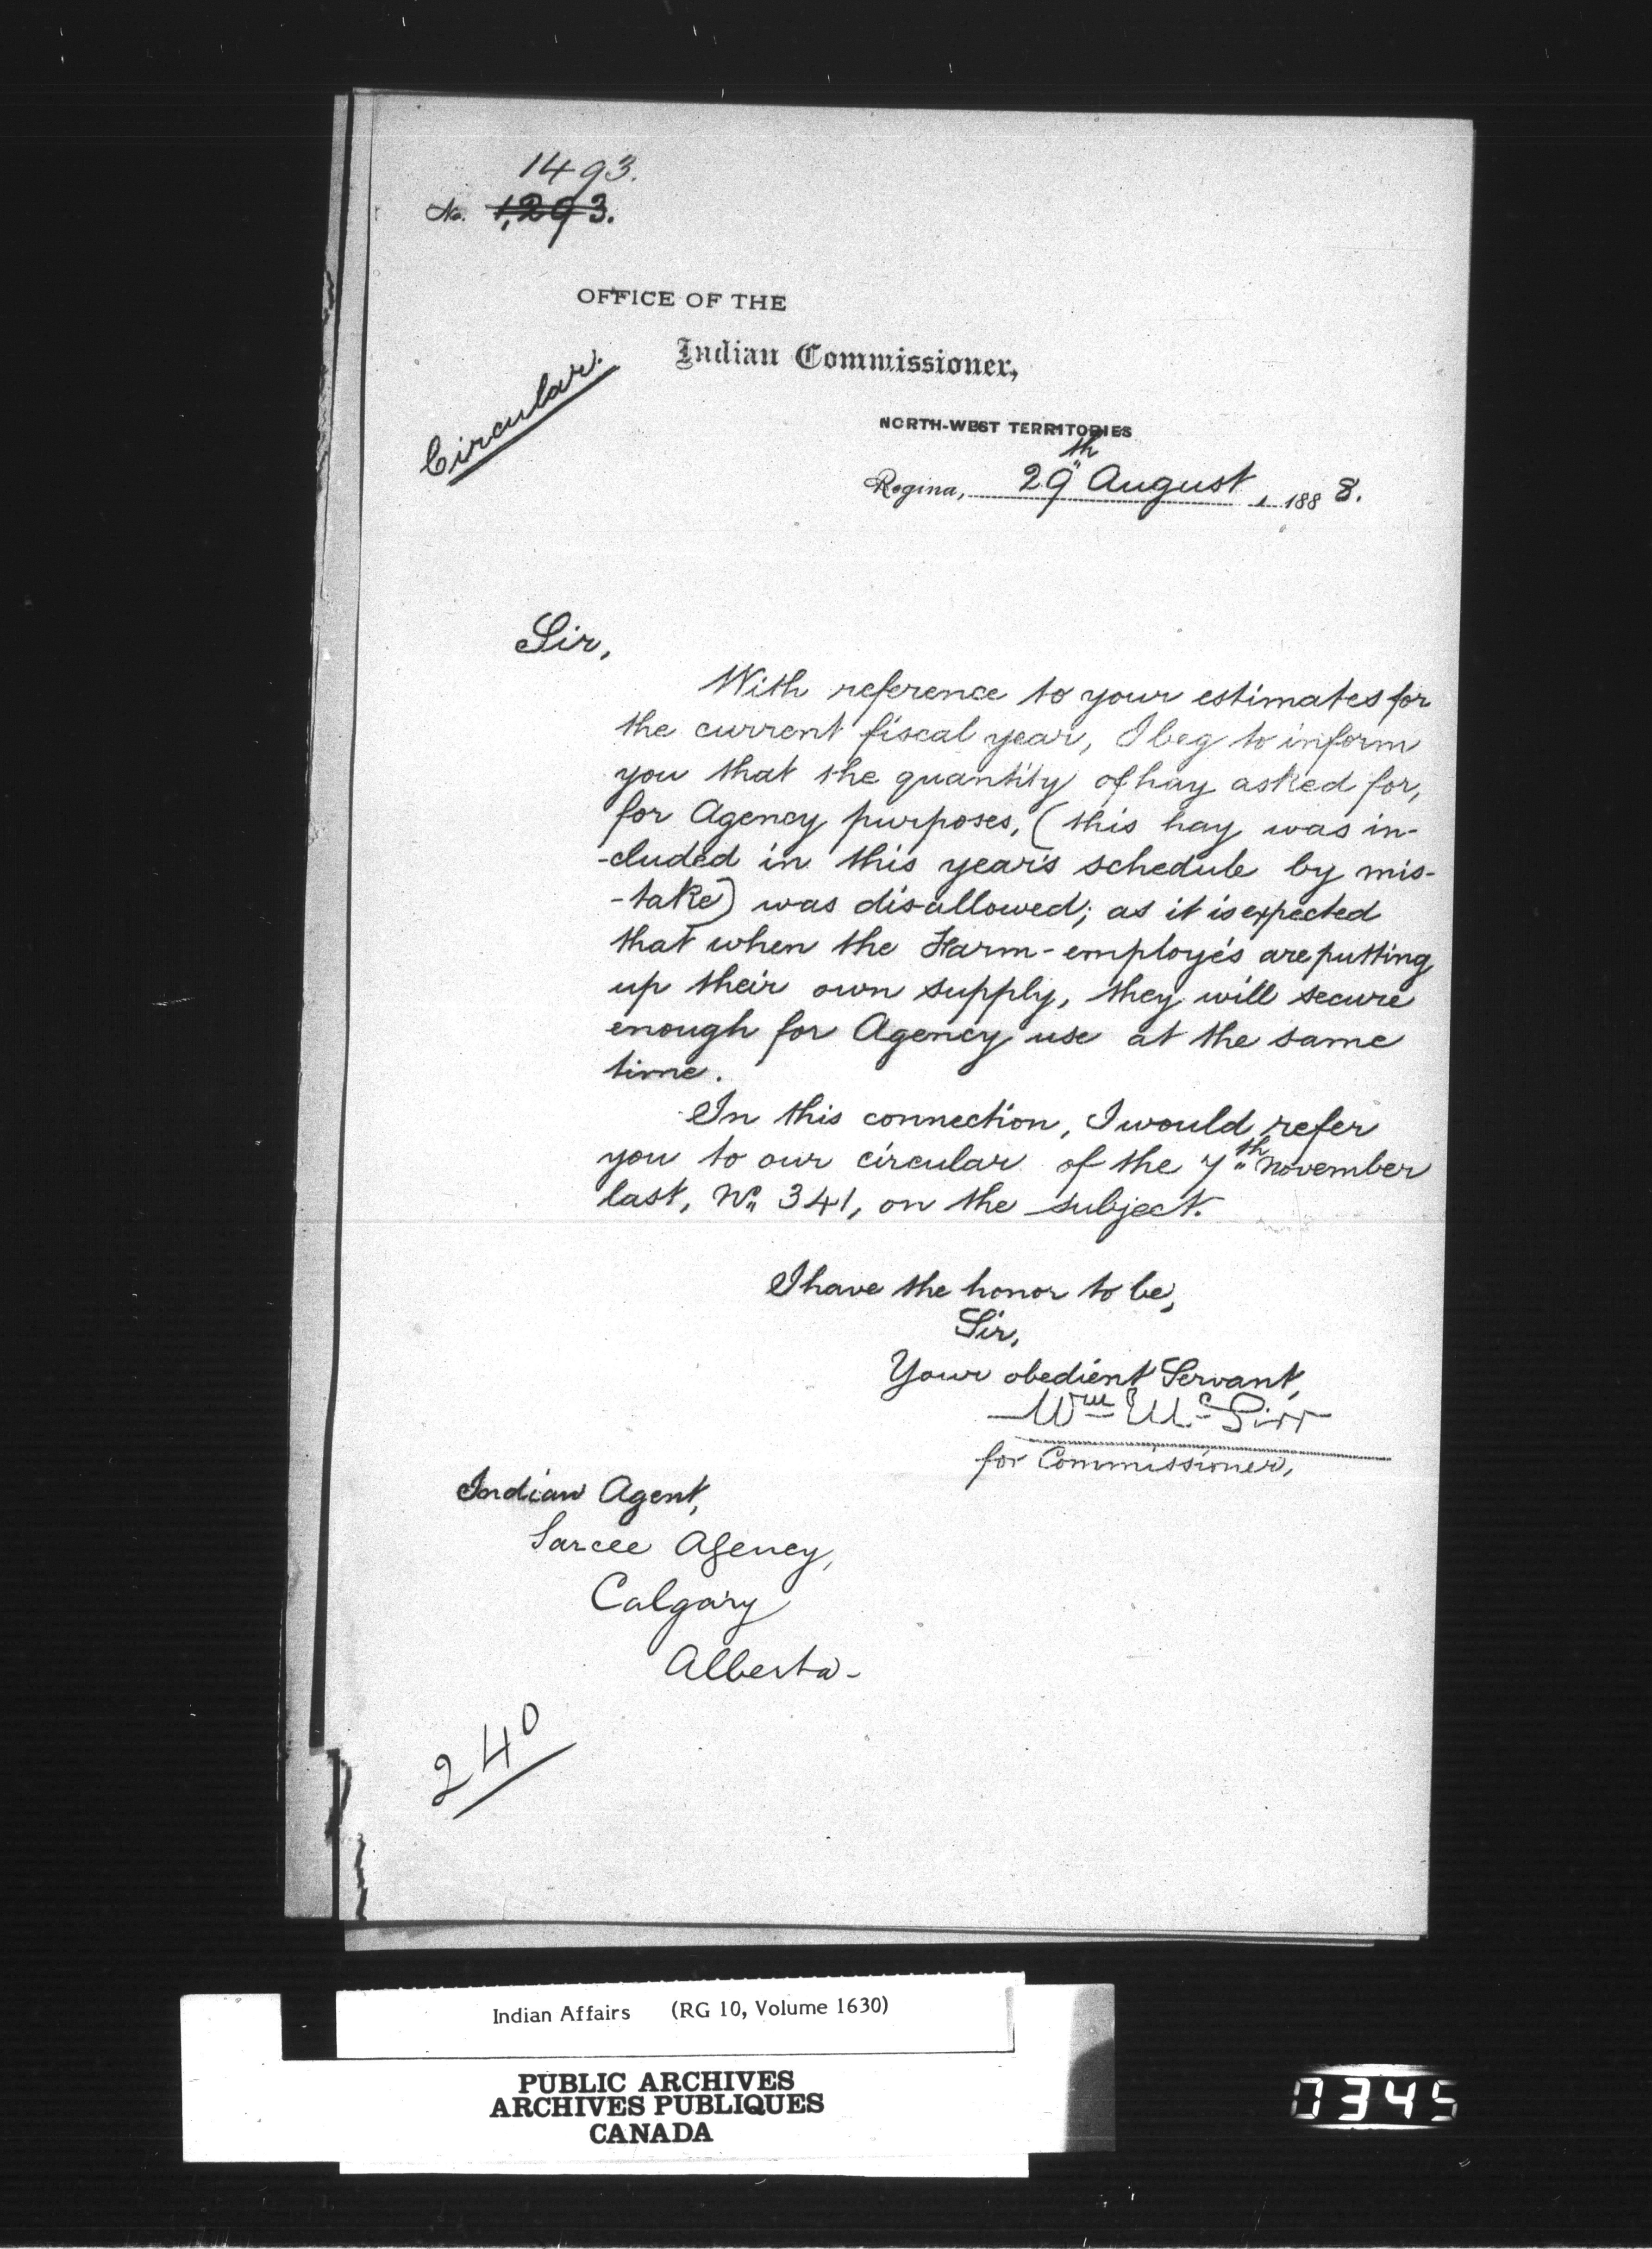 1493.
No. 1,293.
OFFICE OF THE
Indian Commissioner,
Circular.
NORTH-WEST TERRITORIES
Regina, 29th August, 1888.
Sir,
With reference to your estimates for
the current fiscal year, I beg to inform
you that the quantity of hay asked for,
for Agency purposes, (this hay was in-
-cluded in this year's schedule by mis-
-take) was disallowed; as it is expected
that when the Farm-employés are putting
up their own supply, they will secure
enough for Agency use at the same
time.
In this connection, I would refer
you to our circular of the 7th November
last, No. 341, on the subject.
I have the honor to be,
Sir,
Your obedient Servant,
Wm Mc
for Commissioner,
Indian Agent,
Sarcee Agency,
Calgary
Alberta-
240
Indian Affairs (RG 10, Volume 1630)
PUBLIC ARCHIVES
ARCHIVES PUBLIQUES
CANADA
0345